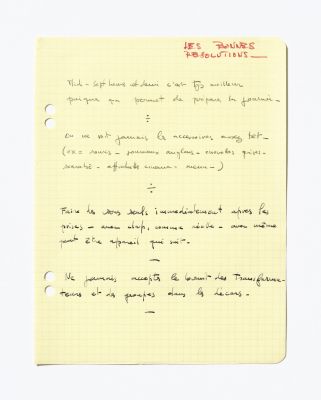 LES BONNES
RESOLUTIONS_
Midi - sept heures et demi c'est tjs meilleur
puisque ça permet de préparer la journée.
÷
on ne voit jamais les accessoires assez tôt -
(ex = souris - journaux anglais - cravates grises -
- affichette cinéma - menu - )
÷
Faire les sons seuls immédiatement après les
prises - avec clap, comme réelle - avec même
peut être appareil qui suit -
—
Ne jamais accepter le bruit des transforma-
teurs et des groupes dans les décors -
—